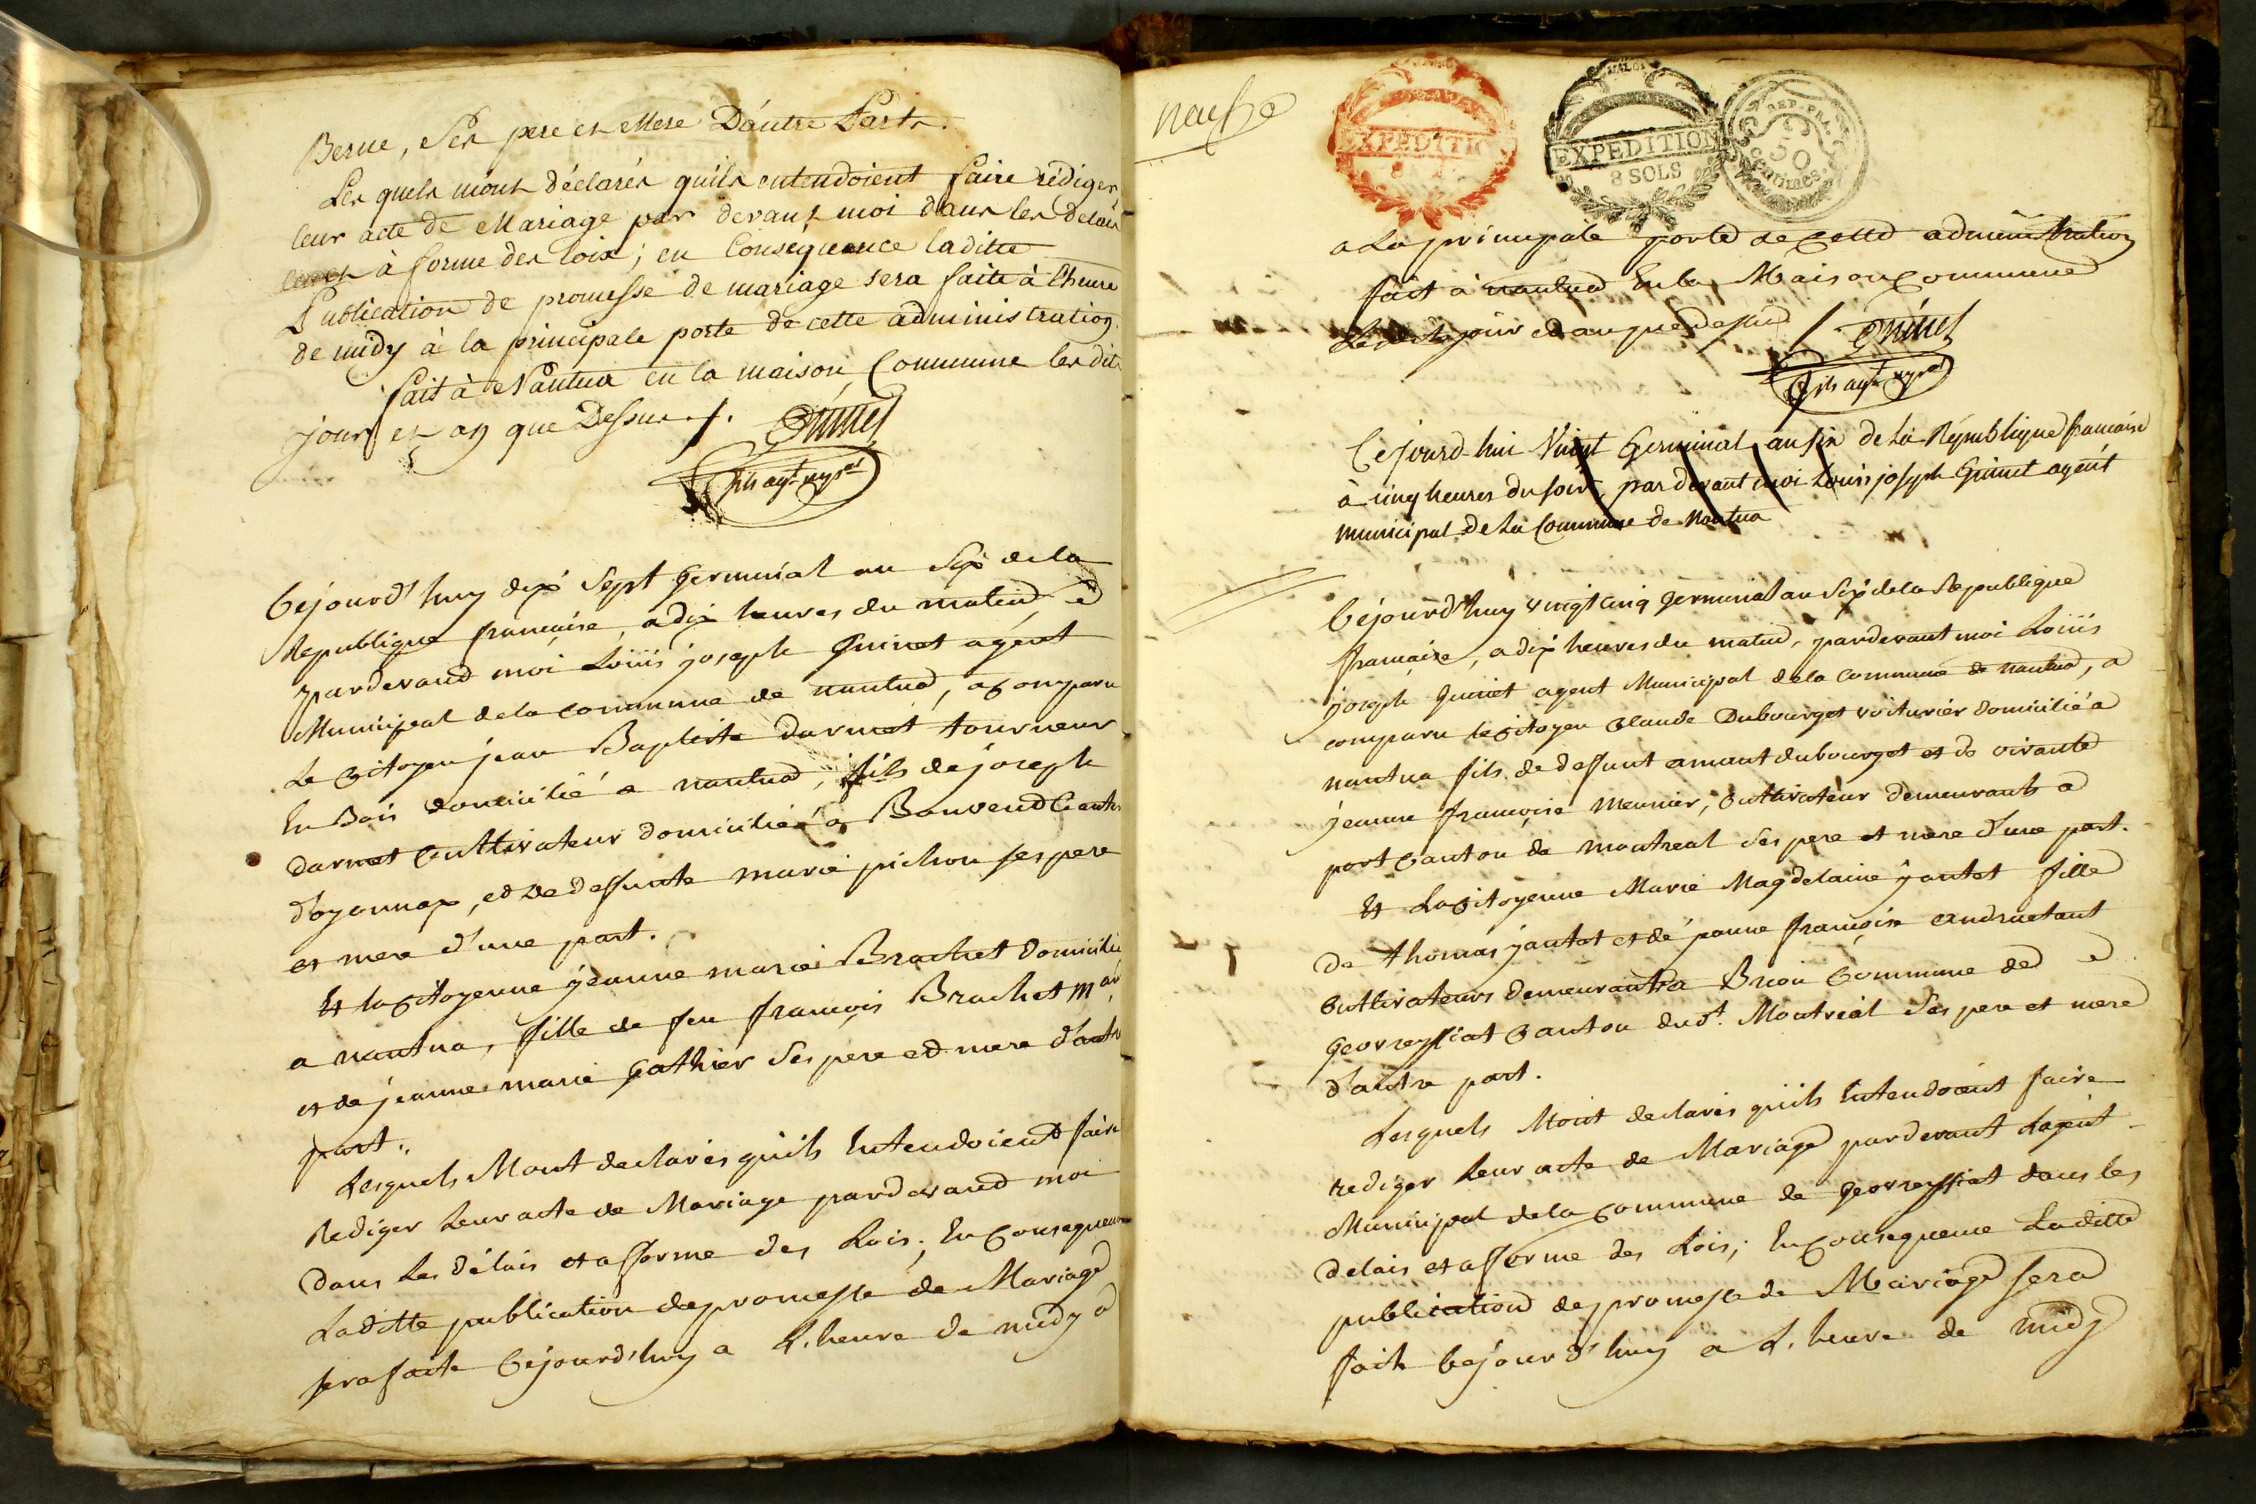 Berne, Ses pere et Mere D'autre Part.
Les quels m'ont déclarés quils entendoient faire rédiger
leur acte de Mariage par devant moi dans les delais
à forme des loix; en Conséquence laditte
Publication de promesse de mariage sera faite à l'heure
de midy à la principale porte de cette administration.
fait à Nantua en la maison Commune les dits
jour et an que Dessus ./.
fils agt mypal
Cejourd'huy dix sept Germinal an Six de la
Republique francaise, a dix heures du matin
pardevand moi Loüis joseph Guinet agent
Municipal de la commune de nantua, a comparu
Le Citoyen jean Baptiste darmet tourneur
En Bois domicilié a nantua, fils de joseph
darmet Cultivateur domicilié a Bouvend Canton
d'oyonnax, et de deffunte marie pichon ses pere
et mere d'une part.
Et la Citoyenne jeanne marie Brachet domicilié
a nantua, fille de feu françois Brachet mar
et de jeanne marie Gathier Ses pere et mere d'autre
part.
Lesquels Mont declarés quils Entendoient faire
Rediger Leur acte de Mariage pardevand moi
dans Les délais et a fforme des Lois; En Consequence
Laditte publication de promesse de Mariage
sera faite Cejourd'huy a L'heure de midy a
neuf
EXPEDITION
8
EXPEDITION
8 SOLS
REP. FRA.
50
centimes.
a La principale porte de cette administration
fait à nantua En la Maison Commune
Le dit jour et an que dessus /
fils agt mypal
Cejourd-hui Vingt Germinal an six de la République francaise
à cinq heures du soir, pardevant moi Louis joseph Guinet agent
municipal de la Commune de Nantua
Cejourd'huy vingt cinq Germinal an Six de la Republique
francaise, a dix heures du matin, pardevant moi Loüis
joseph Guinet agent Municipal de la Commune de nantua, a
comparu le Citoyen Claude Dubourget voiturier domicilié a
nantua fils de deffunt amant dubourget et de vivante
jeanne françoise Meunier, Cultivateur demeurants a
port Canton de Montreal Ses pere et mere d'une part.
Et La Citoyenne Marie Magdelaine jantet fille
de thomas jantet et de françoise
Cultivateurs demeurants a Brion Commune de
Georreyssiat Canton dudt. Montreal Ses pere et mere
d'autre part.
Lesquels Mont declarés quils Entendoient faire
rediger Leur acte de Mariage pardevant Lagent
Municipal de la Commune de Georreyssiat dans les
delais et a fforme des Lois; En Consequence Laditte
publication de promesse de Mariage sera
faite Cejourd'huy a L'heure de midy